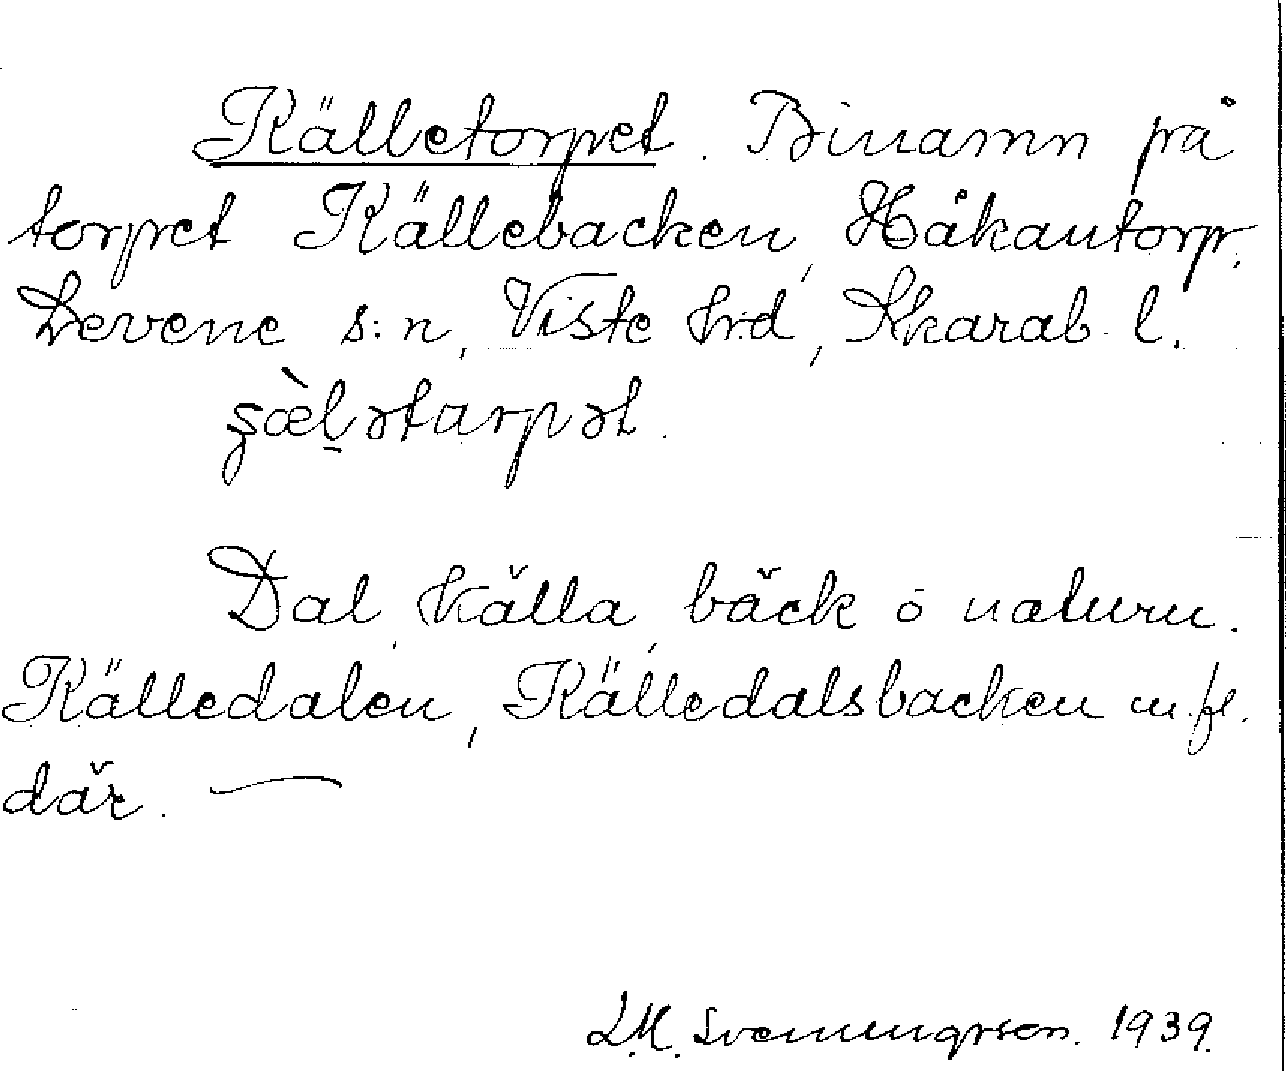 Källetorpet. Binamn på
torpet Källebacken, Håkantorp.
Levene s:n, Viste hrd, Skarab. l.
ʂæ̀l̠ətarpət.
Dal, källa, bäck o naturn.
Källedalen, Källedalsbacken m.fl.
där. —
L.M. Svenungsson. 1939.